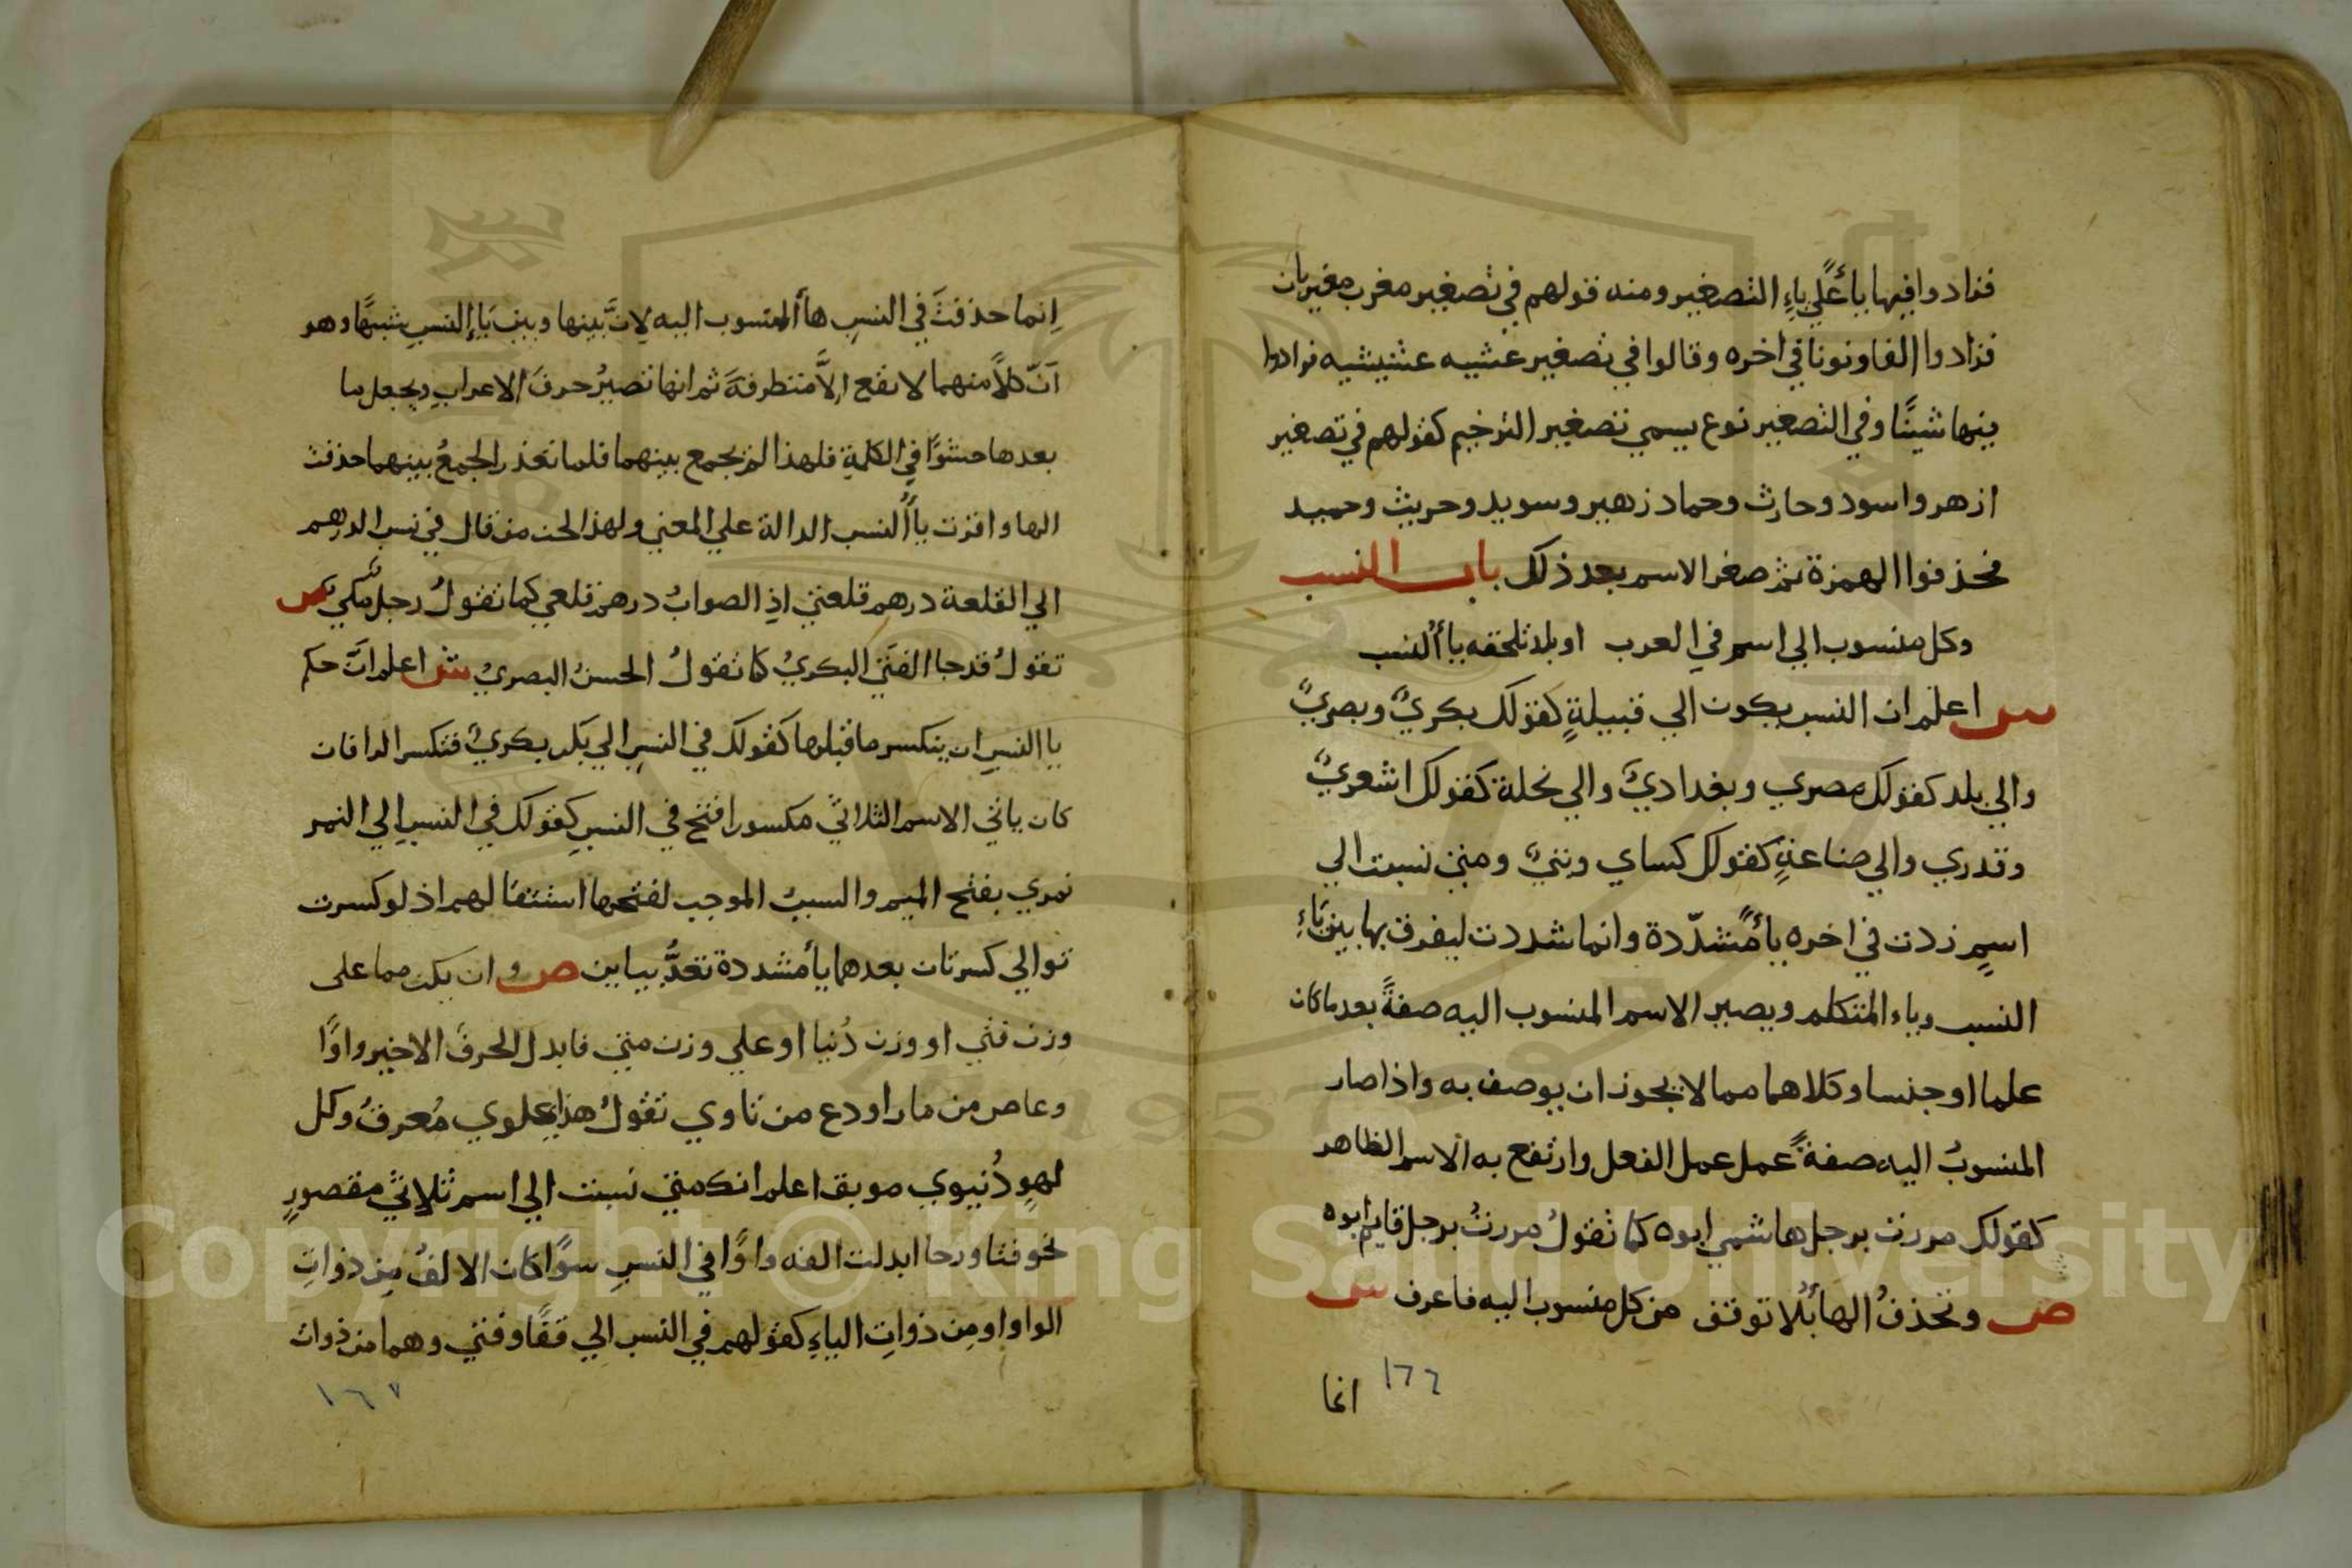 فزادوا فيها ياءً علي ياءِ التصغير ومنه قولهم في تصغير مغرب مغيربان
فزادوا الفا ونونا في اخره وقالوا في تصغير عشيه عشيشيه فزادوا
فيها شينًا وفي التصغير نوع يسمي تصغير الترخيم كقولهم في تصغير
ازهر واسود وحارث وحماد زهير وسويد وحريث وحميد
فحذفوا الهمزة ثم صغر الاسم بعد ذلك باب النسب
وكل منسوب الي اسم في العرب او بلد تلحقه ياأ النسب
ش اعلم ان النسب يكون الي قبيلةٍ كقولك بكريٌ وبصريٌ
والي بلد كقولك مصري وبغداديٌ والي نحلة كقولك اشعريٌ
وقدري والي صناعةٍ كقولك كساي وبتيٌ ومتي نسبت الي
اسمٍ زدت في اخره ياأً مشدّدة وانما شددت ليفرق بها بين ياءِ
النسب وياء المتكلم ويصير الاسم المنسوب اليه صفةً بعد ما كان
علما او جنسا وكلاهما مما لا يجوز ان يوصف به واذا صار
المنسوبُ اليه صفةً عمل عمل الفعل وارتفع به الاسم الظاهر
كقولك مررت برجل هاشمي ابوه كما تقولُ مررتُ برجل قايم ابوه
ص وتحذفُ الهاء بلا توقف من كل منسوب اليه فاعرف ش
١٦٦
انما
اِنما حذفتَ في النسبِ هاأ المنسوب اليه لانَّ بينها وبين ياءِ النسبِ شبهًا وهو
انّ كلاًّ منهما لا يقع اِلَّا متطرفةً ثم انها تصيرُ حرفَ الاعرابِ ويجعل ما
بعدها حشوًا في الكلمةِ فلهذا لم يجمع بينهما فلما تعذر الجمعُ بينهما حذفت
الها واقرت ياأ النسب الدالة علي المعني ولهذا لحن من قال في نسب الدرهم
الي القلعة درهم قلعتي اذِ الصوابُ درهم قلعي كما تقولُ رجل مكي ص
تقولُ قد جا الفتي البكريُ كما تقولُ الحسنُ البصريُ ش اعلم انَّ حكم
يا النسبِ ان ينكسر ما قبلها كقولك في النسبِ الي بكر بكريٌ فتكسر الرا فان
كان ياتي الاسم الثلاثي مكسورا فتح في النسبِ كقولك في النسبِ الي النمر
نمري بفتح الميم والسببُ الموجب لفتحها استثقالهم اذ لو كسرت
توالي كسرتان بعدهما ياأ مشددة تعدُّ بيايين ص وان يكن مما على
وزن فتي او وزن دُنيا او علي وزن متي فابدل الحرفَ الاخير واوًا
وعاص من مارا ودع من ناوي تقولُ هذا عِلوي مُعرقٌ وكل
لهوٍ دُنيوي موبق اعلم انك متي نسبت الي اسم ثلاثي مقصورٍ
نحو فتا ورحا ابدلت الفه واوًا في النسبِ سوًا كان الالفُ من ذواتِ
الواو او مِن ذواتِ الياءِ كقولهم في النسب الي قفًا وفتي وهما من ذوات
١٦٧
Copyright © King Saud University
1957